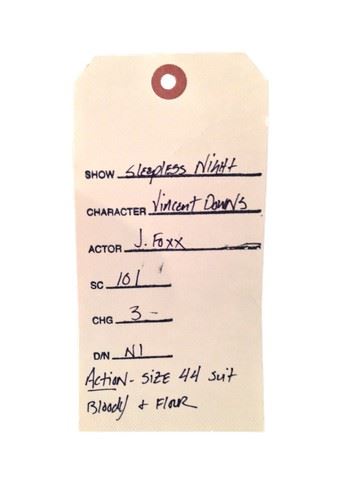 SHOW Sleepless Night
CHARACTER Vincent Downs
ACTOR J. Foxx
SC 101
CHG 3-
D/N N1
Action - SIZE 44 Suit
Bloody + Flour